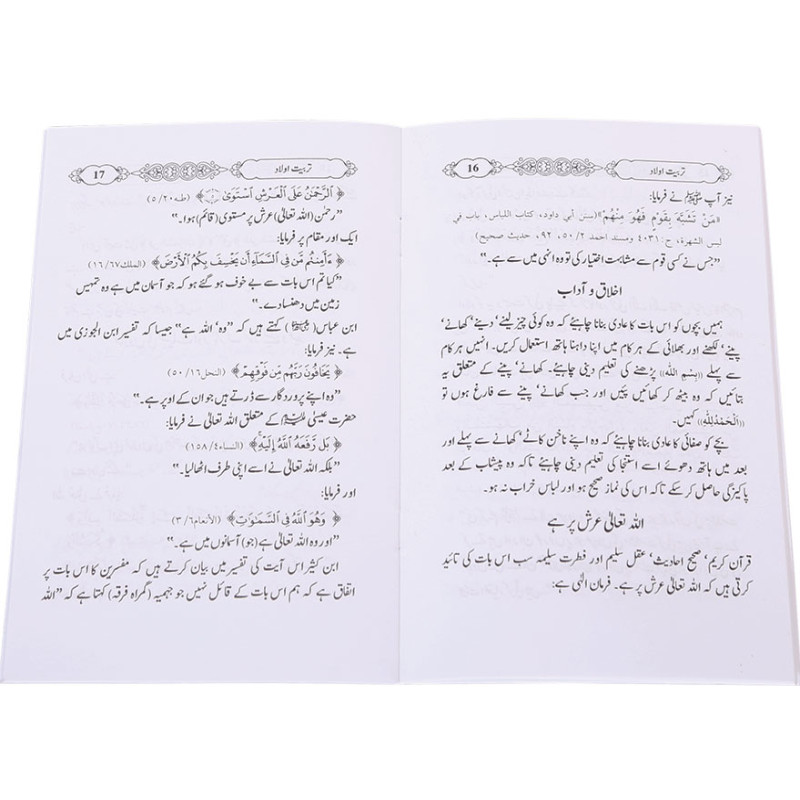 16
تربیت اولاد
نیز آپ ﷺ نے فرمایا:
«مَنْ تَشَبَّهَ بِقَوْمٍ فَهُوَ مِنْهُمْ»(سنن أبی داود، کتاب اللباس، باب فی
لبس الشهرة، ح:۴۰۳۱ ومسند احمد ۲/۵۰، ۹۲، حدیث صحیح)
”جس نے کسی قوم سے مشابہت اختیار کی تو وہ انہی میں سے ہے۔“
اخلاق و آداب
ہمیں بچوں کو اس بات کا عادی بنانا چاہیئے کہ وہ کوئی چیز لینے‘ دینے‘ کھانے‘
پینے‘ لکھنے اور بھلائی کے ہر کام میں اپنا داہنا ہاتھ استعمال کریں۔ انہیں ہر کام
سے پہلے ((بِسْمِ اللہ)) پڑھنے کی تعلیم دینی چاہیئے۔ کھانے‘ پینے کے متعلق یہ
بتائیں کہ وہ بیٹھ کر کھائیں پئیں اور جب کھانے‘ پینے سے فارغ ہوں تو
((اَلْحَمْدُلِلّٰہِ)) کہیں۔
بچے کو صفائی کا عادی بنانا چاہیئے کہ وہ اپنے ناخن کاٹے‘ کھانے سے پہلے اور
بعد میں ہاتھ دھوئے اسے استنجا کی تعلیم دینی چاہیئے تاکہ وہ پیشاب کے بعد
پاکیزگی حاصل کر سکے تاکہ اس کی نماز صحیح ہو اور لباس خراب نہ ہو۔
اللہ تعالیٰ عرش پر ہے
قرآن کریم‘ صحیح احادیث‘ عقل سلیم اور فطرت سلیمہ سب اس بات کی تائید
کرتی ہیں کہ اللہ تعالیٰ عرش پر ہے۔ فرمان الٰہی ہے:
17
تربیت اولاد
﴿ ٱلرَّحْمَٰنُ عَلَى ٱلْعَرْشِ ٱسْتَوَىٰ ﴾ (طہ۲۰/ ۵)
”رحمٰن (اللہ تعالیٰ) عرش پر مستوی (قائم) ہوا۔“
ایک اور مقام پر فرمایا:
﴿ ءَأَمِنتُم مَّن فِي ٱلسَّمَآءِ أَن يَخْسِفَ بِكُمُ ٱلْأَرْضَ ﴾ (الملک۶۷/ ۱۶)
”کیا تم اس بات سے بے خوف ہو گئے ہو کہ جو آسمان میں ہے وہ تمہیں
زمین میں دھنسا دے۔“
ابن عباس( ) کہتے ہیں کہ ”وہ‘ اللہ ہے“ جیسا کہ تفسیر ابن الجوزی میں
ہے۔ نیز فرمایا:
﴿ يَخَافُونَ رَبَّهُم مِّن فَوْقِهِمْ ﴾ (النحل۱۶/ ۵۰)
”وہ اپنے پروردگار سے ڈرتے ہیں جو ان کے اوپر ہے۔“
حضرت عیسیٰ کے متعلق اللہ تعالیٰ نے فرمایا:
﴿ بَل رَّفَعَهُ ٱللَّهُ إِلَيْهِ ﴾ (النساء۴/ ۱۵۸)
”بلکہ اللہ تعالیٰ نے اسے اپنی طرف اٹھا لیا۔“
اور فرمایا:
﴿ وَهُوَ ٱللَّهُ فِي ٱلسَّمَٰوَٰتِ ﴾ (الأنعام۶/ ۳)
”اور وہ اللہ تعالیٰ ہے (جو) آسمانوں میں ہے۔“
ابن کثیر اس آیت کی تفسیر میں بیان کرتے ہیں کہ مفسرین کا اس بات پر
اتفاق ہے کہ ہم اس بات کے قائل نہیں جو جہمیہ (گمراہ فرقہ) کہتا ہے کہ ”اللہ